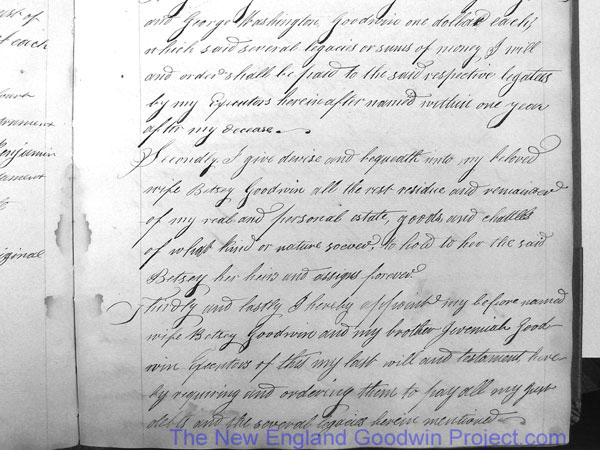 ast of
t each
Court
ernment
Benjamin
tament
ts
iginal
and George Washington, Goodwin one dollar each,
which said several legacies or sums of money, I will
and order shall be paid to the said respective legatees
by my Executors hereinafter named within one year
after my decease.
Secondly. I give devise and bequeath unto my beloved
wife Betsey Goodwin all the rest residue and remainder
of my real and personal estate, goods and chattels
of what kind or nature soever, to hold to her the said
Betsey her heirs and assigns forever.
Thirdly and lastly I hereby appoint my before named
wife Betsey Goodwin and my brother Jeremiah Good
win Executors of this my last will and testament here
by requiring and ordering them to pay all my just
debts and the several legacies herein mentioned
The New England Goodwin Project.com